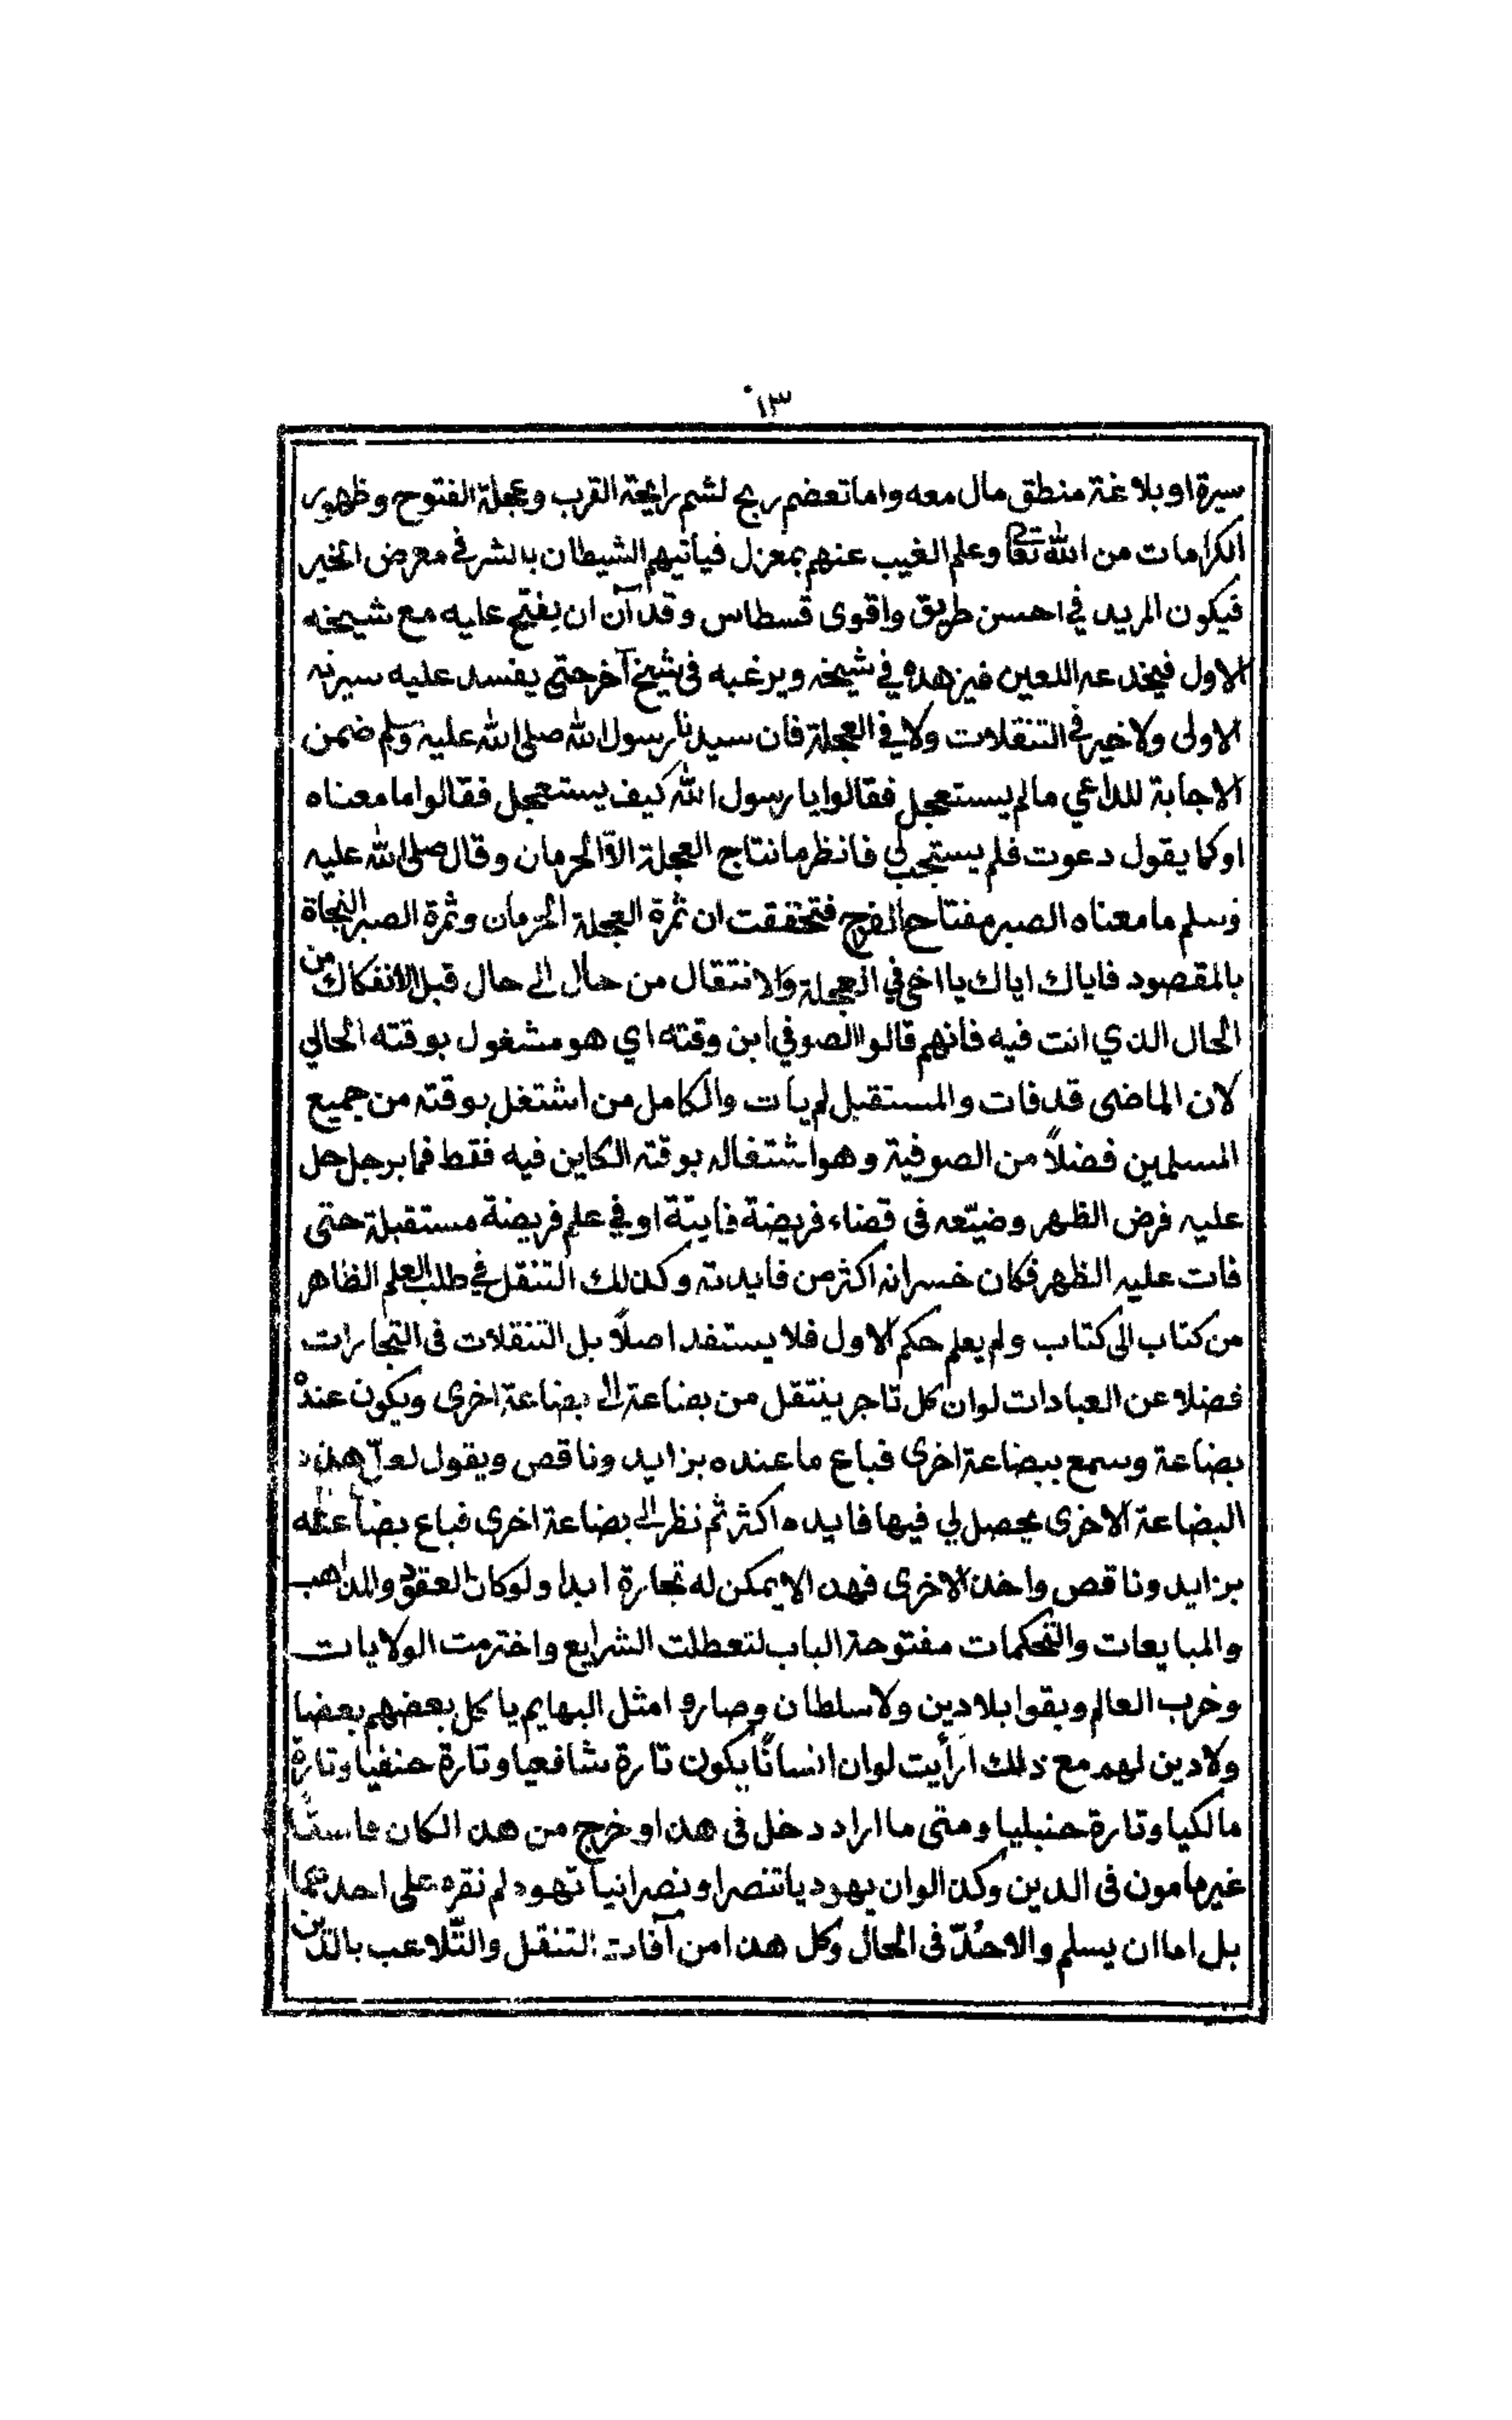 ١٣٠
سيرة او بلاغة منطق مال معه واما تعضم ربح لشم رايحة القرب وعجلة الفتوح وظهور
الكرامات من الله تعا وعلم الغيب عنهم بمعزل فيأتيهم الشيطان بالشر في معرض الخير
فيكون المريد في احسن طريق واقوى قسطاس وقد آن ان يفتح عليه مع شيخه
الاول فيخدعه اللعين فيزهده في شيخه ويرغبه فى شيخ آخر حتى يفسد عليه سيرته
الاولى ولا خير فى التنقلات ولا في العجلة فان سيدنا رسول الله صلى الله عليه وسلم ضمن
الاجابة للداعي ما لم يستعجل فقالوا يا رسول الله كيف يستعجل فقالوا ما معناه
او كما يقول دعوت فلم يستجب لي فانظر ما نتاج العجلة الاّ الحرمان وقال صلى الله عليه
وسلم ما معناه الصبر مفتاح الفرج فتحققت ان ثمرة العجلة الحرمان وثمرة الصبر النجاة
بالمقصود فاياك اياك يا اخى في العجلة والانتقال من حال الى حال قبل الانفكاك من
الحال الذي انت فيه فانهم قالوا الصوفي ابن وقته اي هو مشغول بوقته الحالي
لان الماضى قد فات والمستقبل لم يأت والكامل من اشتغل بوقته من جميع
المسلمين فضلاً من الصوفية وهو اشتغاله بوقته الكاين فيه فقط فما برجل حل
عليه فرض الظهر وضيّعه فى قضاء فريضة فايتة او في علم فريضة مستقبلة حتى
فات عليه الظهر فكان خسرانه اكثر من فايدته وكذلك التنقل في طلب العلم الظاهر
من كتاب الى كتاب ولم يعلم حكم الاول فلا يستفد اصلاً بل التنقلات فى التجارات
فضلا عن العبادات لو ان كل تاجر ينتقل من بضاعة الى بضاعة اخرى ويكون عنده
بضاعة وسمع ببضاعة اخرى فباع ما عنده بزايد وناقص ويقول لعلّ هذه
البضاعة الاخرى يحصل لي فيها فايده اكثر ثم نظر الى بضاعة اخرى فباع بضاعته
بزايد وناقص واخذ الاخرى فهذا لا يمكن له تجارة ابدا ولو كان العقود والمذاهب
والمبايعات والتحكمات مفتوحة الباب لتعطلت الشرايع واخترمت الولايات
وخرب العالم وبقوا بلا دين ولا سلطان وصاروا مثل البهايم ياكل بعضهم بعضا
ولا دين لهم مع ذلك ارأيت لو ان انسانًا يكون تارة شافعيا وتارة حنفيا وتارة
مالكيا وتارة حنبليا ومتى ما اراد دخل فى هذا وخرج من هذا لكان فاسقًا
غير مامون فى الدين وكذا لو ان يهوديا تنصر او نصرانيا تهود لم نقره على احدهما
بل اما ان يسلم والا حُدّ فى الحال وكل هذا من آفات التنقل والتّلاعب بالدّين